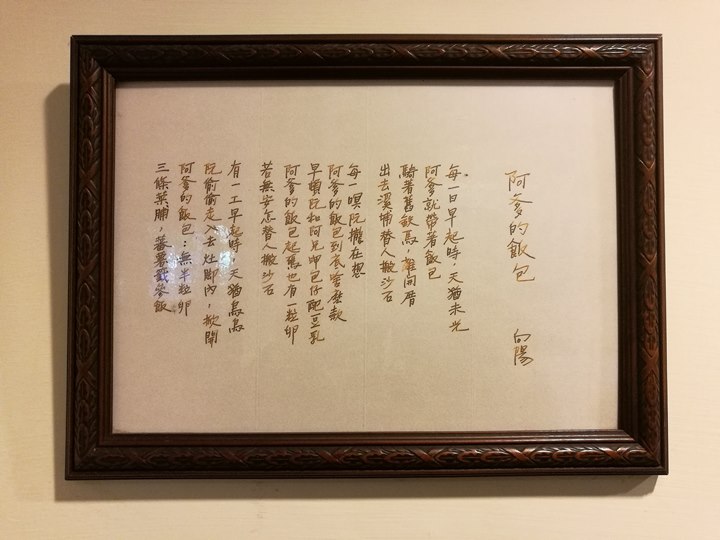 阿爹的飯包
向陽
每一日早起時，天猶未光
阿爹就帶著飯包
騎著舊鉄馬，離開厝
出去溪埔替人搬沙石
每一暝阮攏在想
阿爹的飯包到底啥麼款
早頓阮和阿兄呷包仔配豆乳
阿爹的飯包起馬也有一粒卵
若無安怎替人搬沙石
有一工早起時，天猶烏烏
阮偷偷走入去灶脚內，掀開
阿爹的飯包：無半粒卵
三條菜脯，蕃薯籤參飯